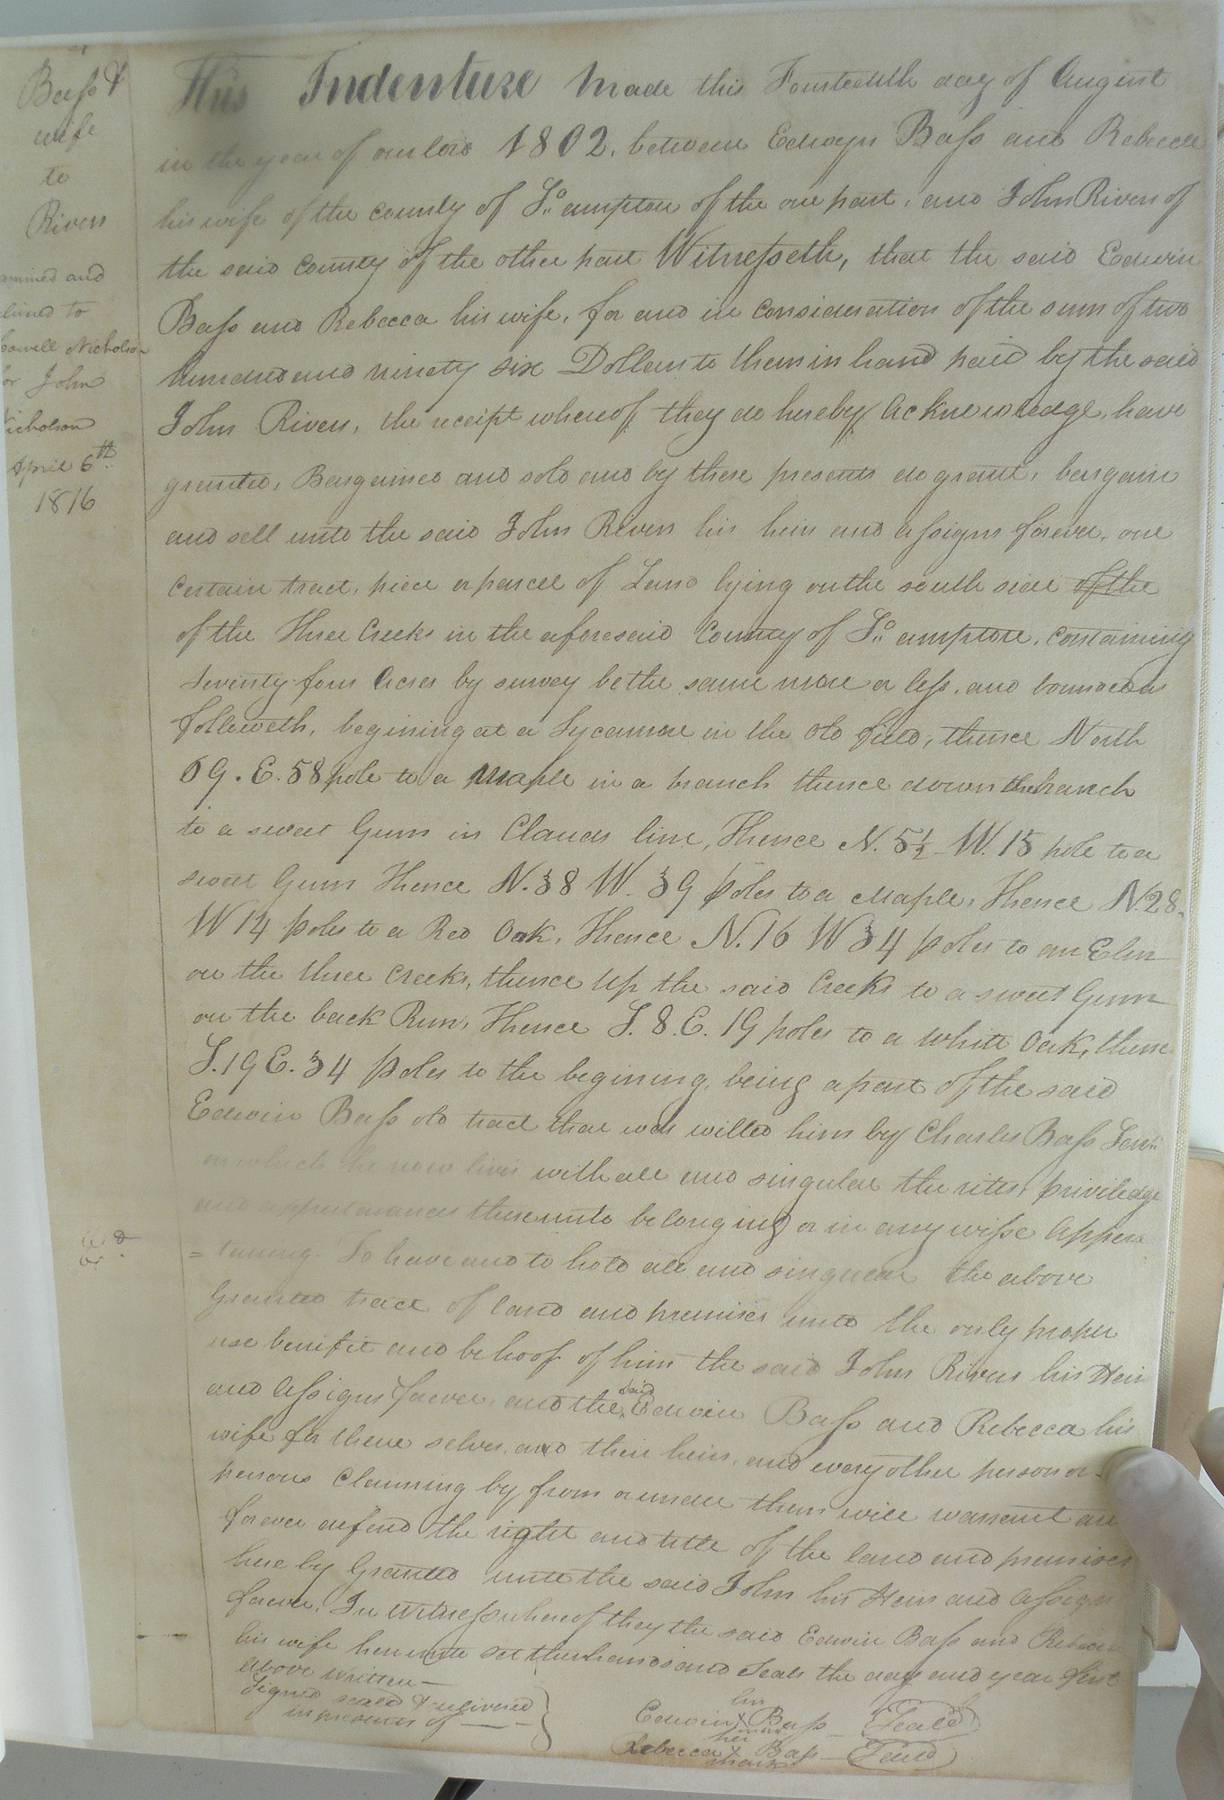 Bass &
wife
to
Rivers
amined and
livered to
Cowell Nicholson
for John
Nicholson
April 6th
1816
This Indenture made this Fourteenth day of August
in the year of our lord 1802, between Edwyn Bass and Rebecca
his wife of the county of So.ampton of the one part, and John Rivers of
the said county of the other part Witnesseth, that the said Edwin
Bass and Rebecca his wife, for and in consideration of the sum of two
hundred and ninety six Dollars to them in hand paid by the said
John Rivers, the receipt whereof they do hereby acknowledge, have
granted, Bargained and sold and by these presents do grant, bargain
and sell unto the said John Rivers his heirs and assigns forever, one
certain tract, piece or parcel of Land lying on the south side of the
of the Three Creeks in the aforesaid County of So.ampton, containing
seventy four Acres by survey be the same more or less, and bounded as
followeth, begining at a Sycamore in the old field, thence North
69. E. 58 pole to a Maple in a branch thence down the branch
to a sweet Gum in Clauds line, Thence N. 5½ W. 15 pole to a
sweet Gum Thence N. 38 W. 39 poles to a Maple, Thence N. 28.
W 14 poles to a Red Oak, Thence N. 16 W 34 poles to an Elm
on the three Creeks, thence up the said Creeks to a sweet Gum
on the back Run, Thence S. 8. E. 19 poles to a White Oak, thence
S. 19 E. 34 poles to the begining, being a part of the said
Edwin Bass old tract that was willed him by Charles Bass Senr.
on which he now lives with all and singular the rites, priviledge
and appurtenances thereunto belonging or in any wise Apper
=taining. To have and to hold all and singular the above
Granted tract of land and premises unto the only proper
use benifit and behoof of him the said John Rivers his Heirs
and Assigns forever, and the said Edwin Bass and Rebecca his
wife for theme selves, and their heirs, and every other person or
persons Claiming by from or under them will warrant and
forever defend the right and title of the land and premises
here by Granted unto the said John his Heirs and Assigns
forever. In Witness whereof they the said Edwin Bass and Rebecca
his wife hereunto set their hands and Seals the day and year first
above written—
Signed sealed & delivered
in presence of ——
his
Edwin X Bass — Seal
mark
her
Rebecca X Bass — Seal
mark